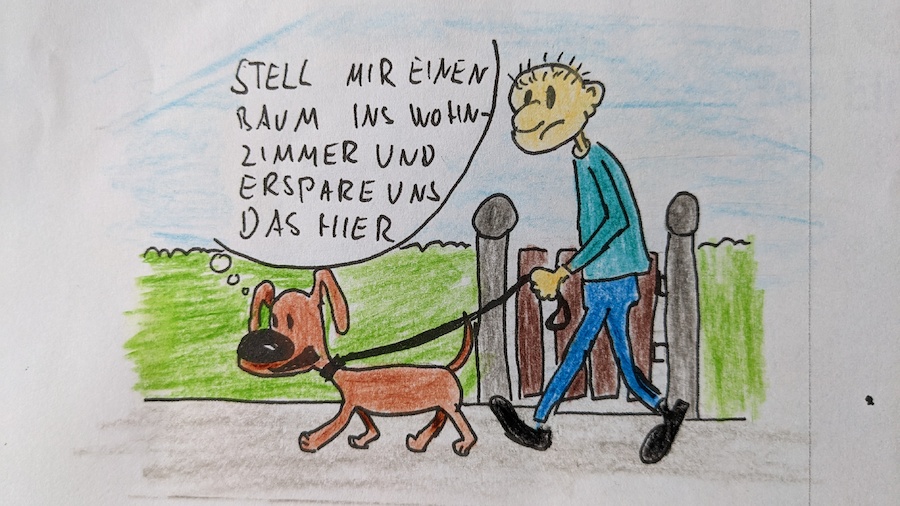 STELL MIR EINEN
BAUM INS WOHN-
ZIMMER UND
ERSPARE UNS
DAS HIER